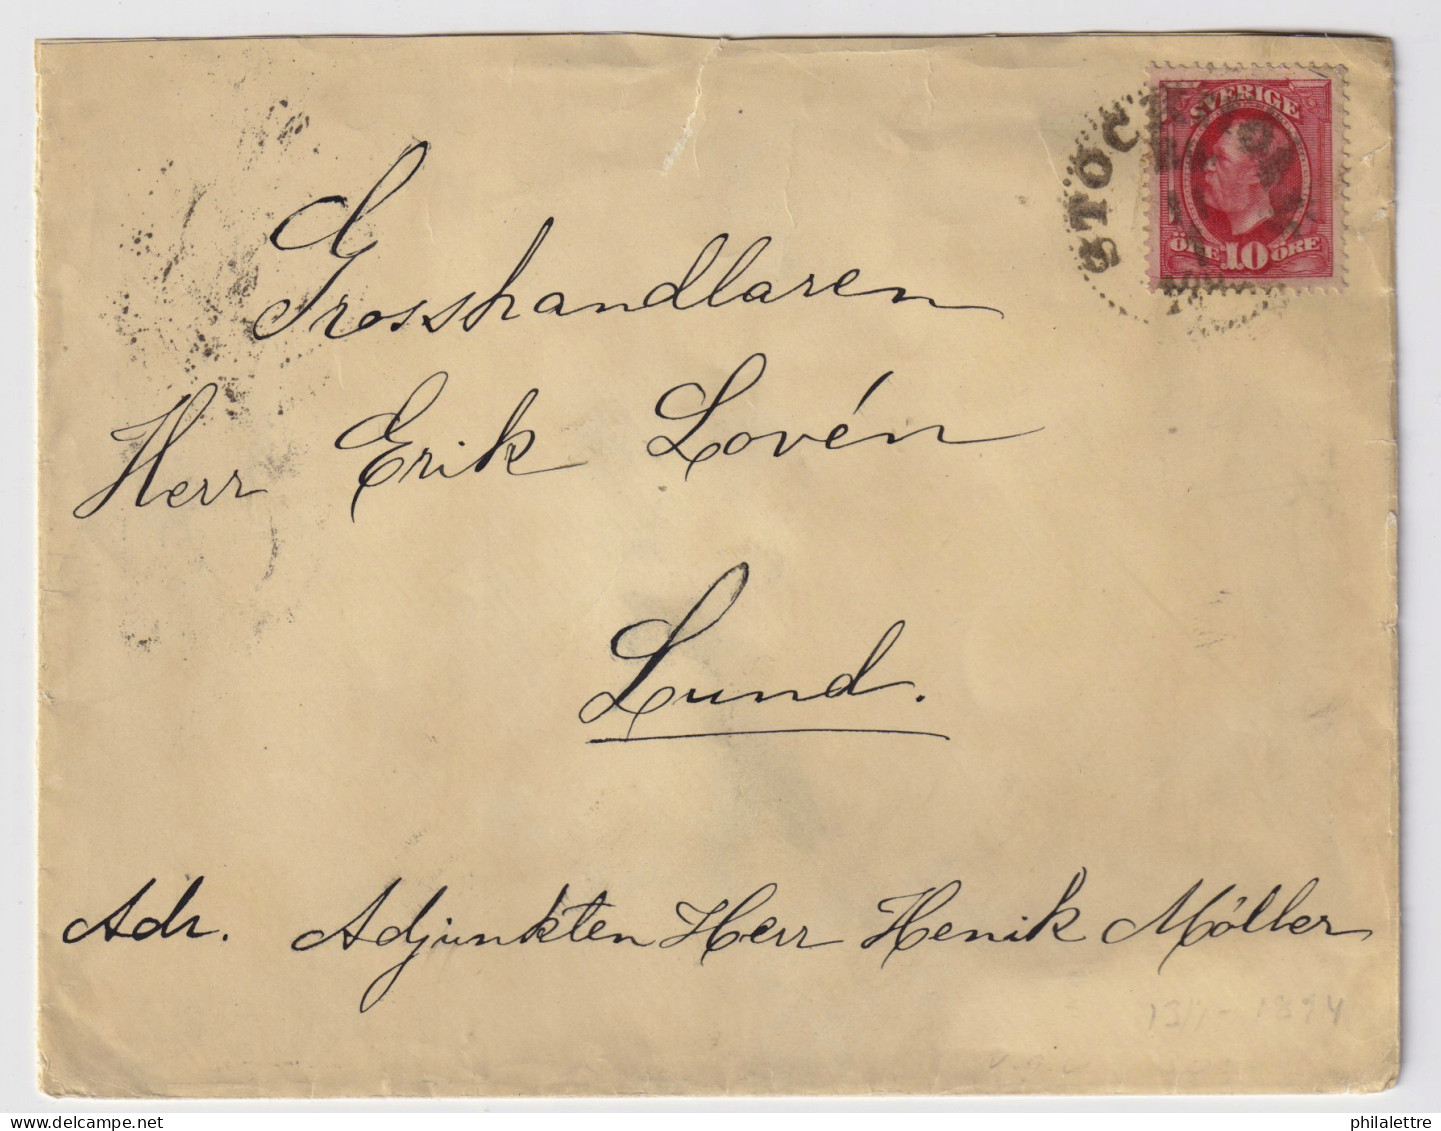 SVERIGE
ÖRE 10 ÖRE
STOCKHOLM
Grosshandlaren
Herr Erik Lovén
Lund.
Adr. Adjunkten Herr Henik Möller
1894
philalettre